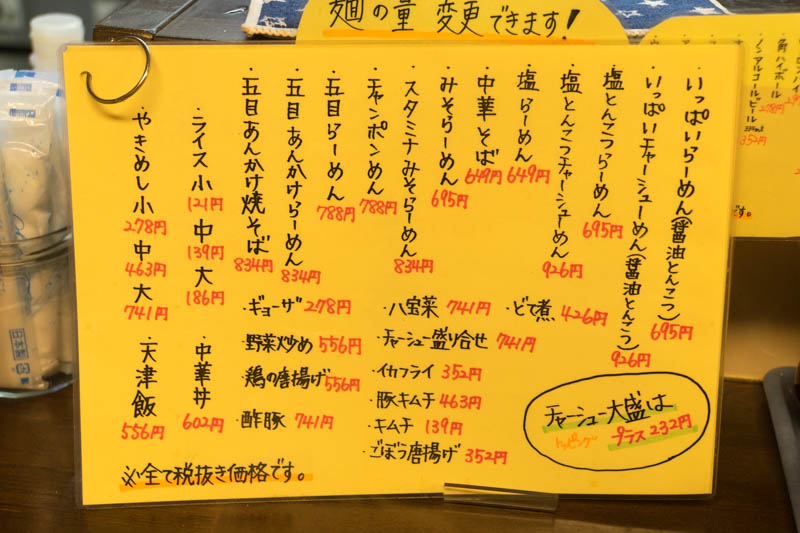 麺の量 変更できます!
・いっぱいらーめん(醤油とんこつ) 695円
・いっぱいチャーシューめん(醤油とんこつ) 926円
・塩とんこつらーめん 695円
・塩とんこつチャーシューめん 926円
・塩らーめん 649円
・中華そば 649円
・みそらーめん 695円
・スタミナみそらーめん 834円
・チャンポンめん 788円
・五目らーめん 788円
・五目あんかけらーめん 834円
・五目あんかけ焼そば 834円
・ライス小 121円 中 139円 大 186円
・やきめし小 278円 中 463円 大 741円
・どて煮 426円
・八宝菜 741円
・チャーシュー盛り合せ 741円
・イカフライ 352円
・豚キムチ 463円
・キムチ 139円
・ごぼう唐揚げ 352円
・ギョーザ 278円
・野菜炒め 556円
・鶏の唐揚げ 556円
・酢豚 741円
・中華丼 602円
・天津飯 556円
チャーシュー大盛は
トッピング プラス232円
※全て税抜き価格です。
・角ハイボール
・ノンアルコールビール 334ml 352円
です。
日本製